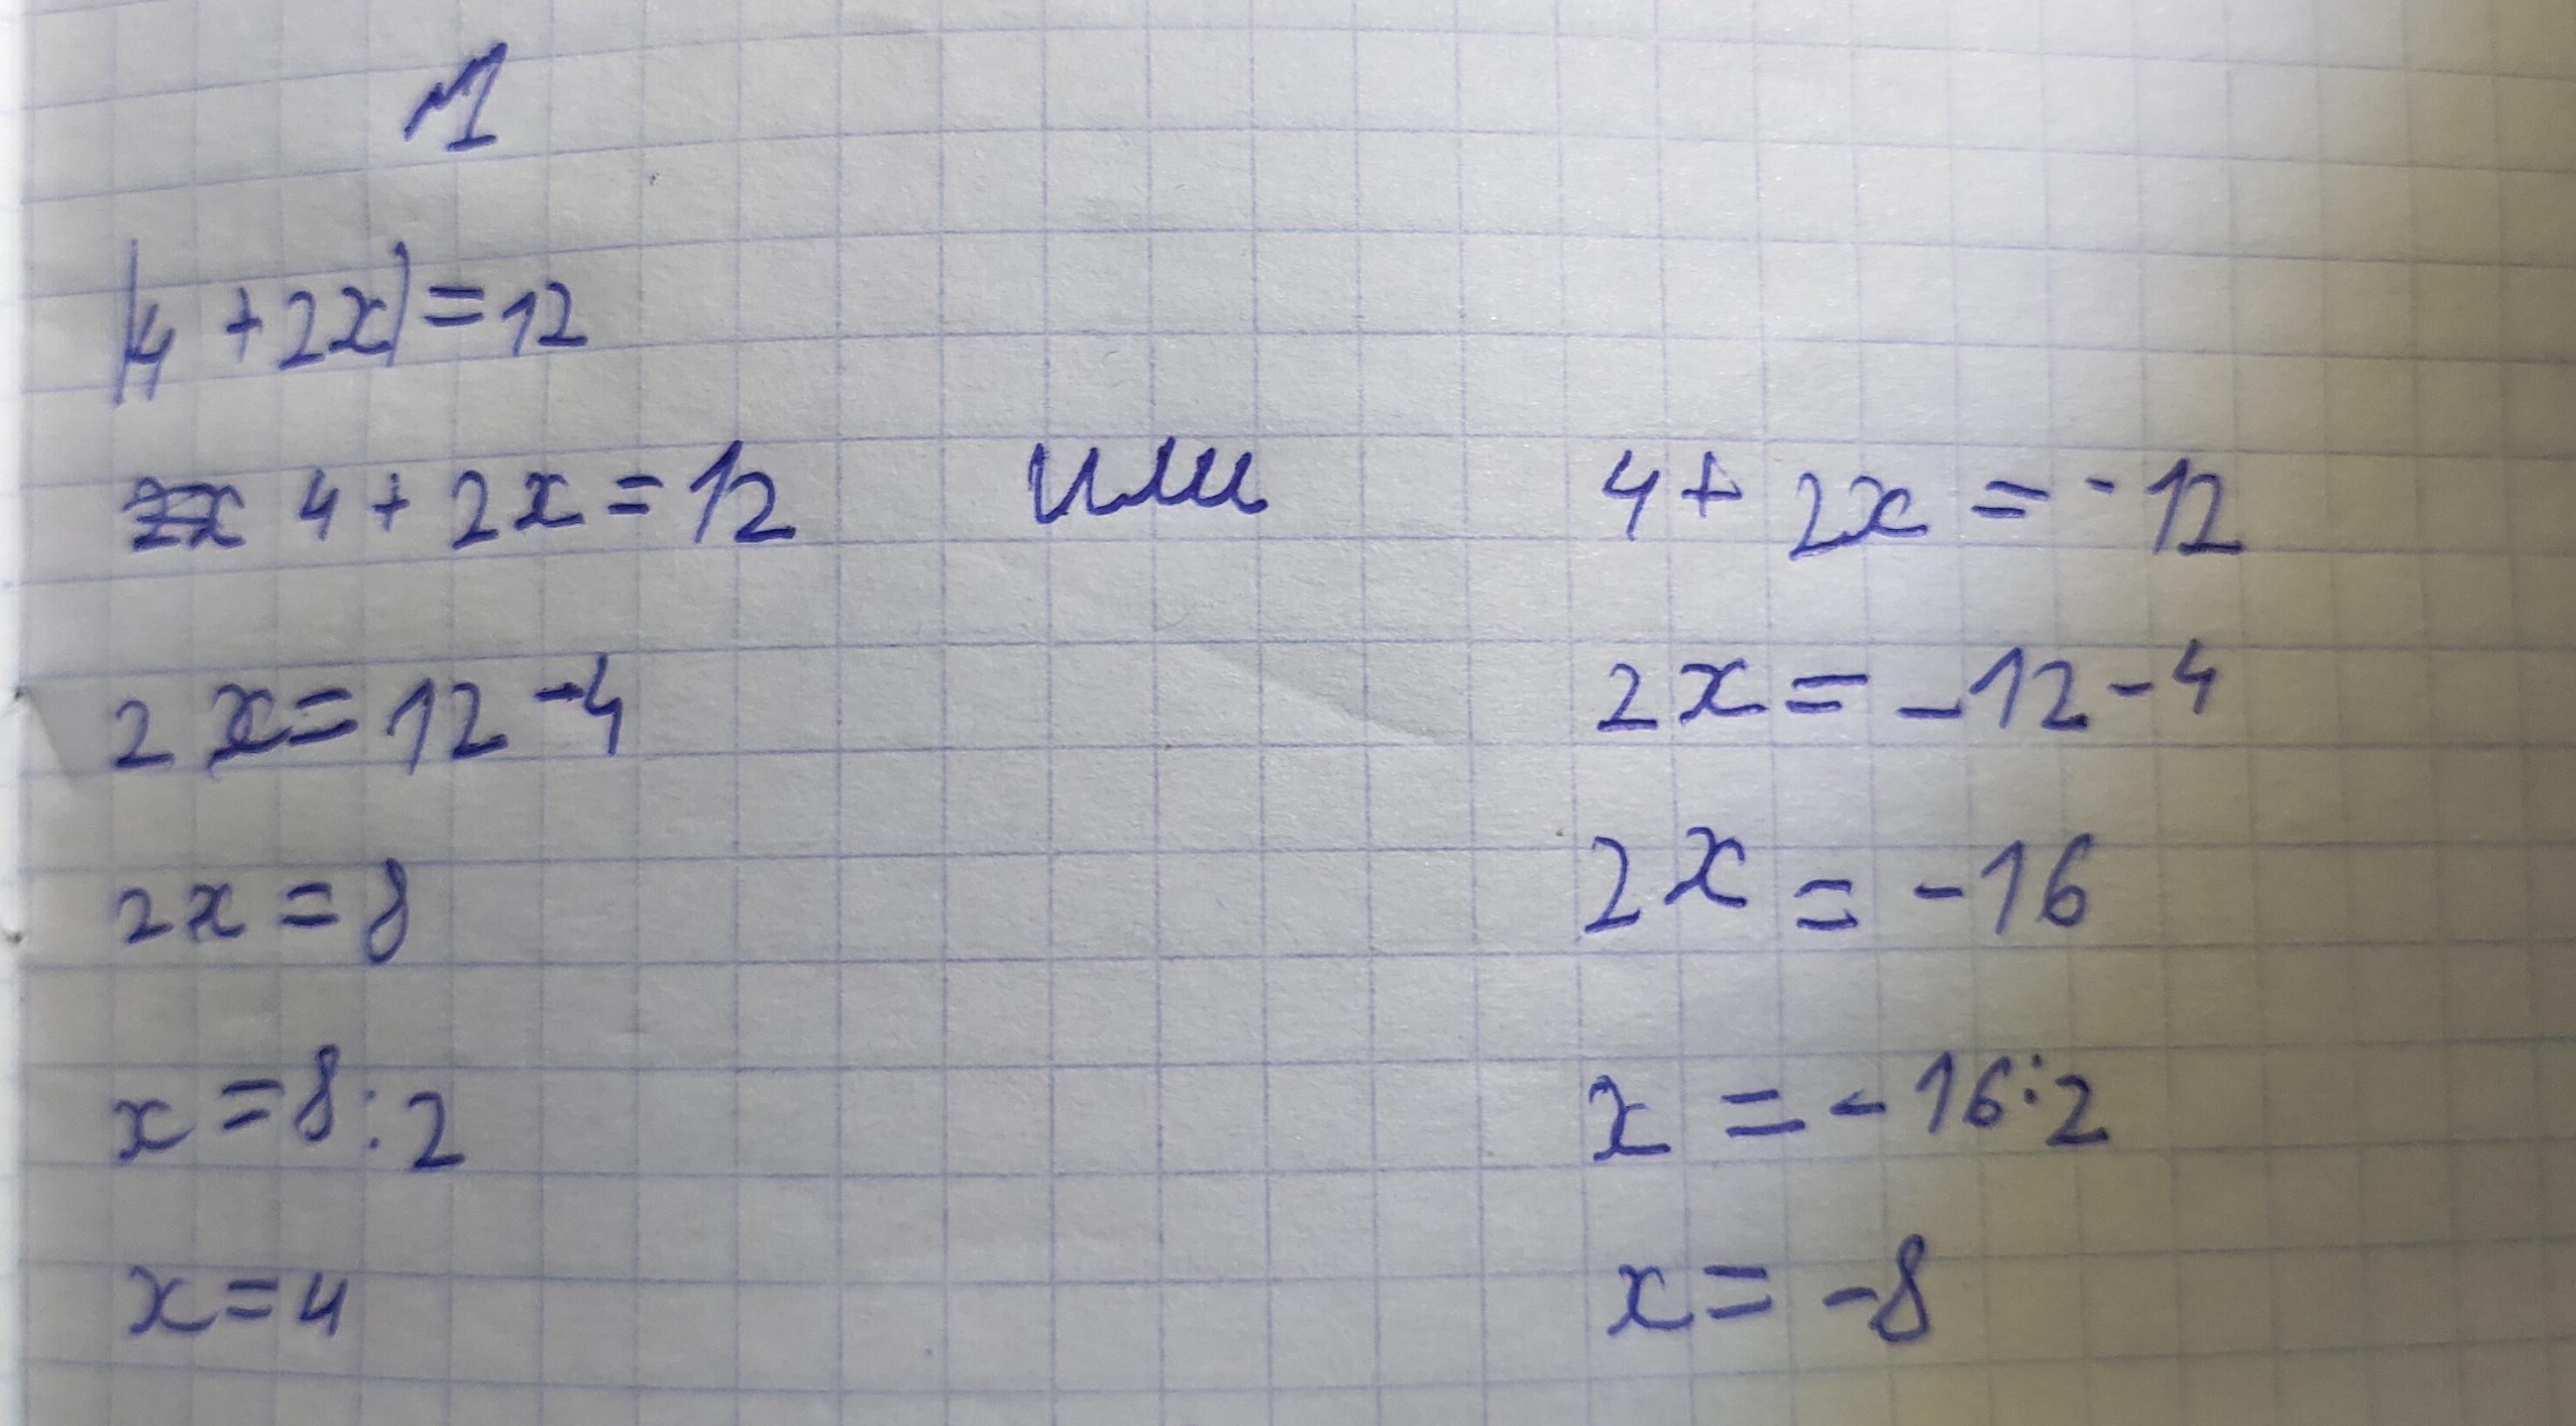 1
|4 + 2x| = 12
4 + 2x = 12 или 4 + 2x = -12
2x = 12 - 4 2x = -12 - 4
2x = 8 2x = -16
x = 8 : 2 x = -16 : 2
x = 4 x = -8